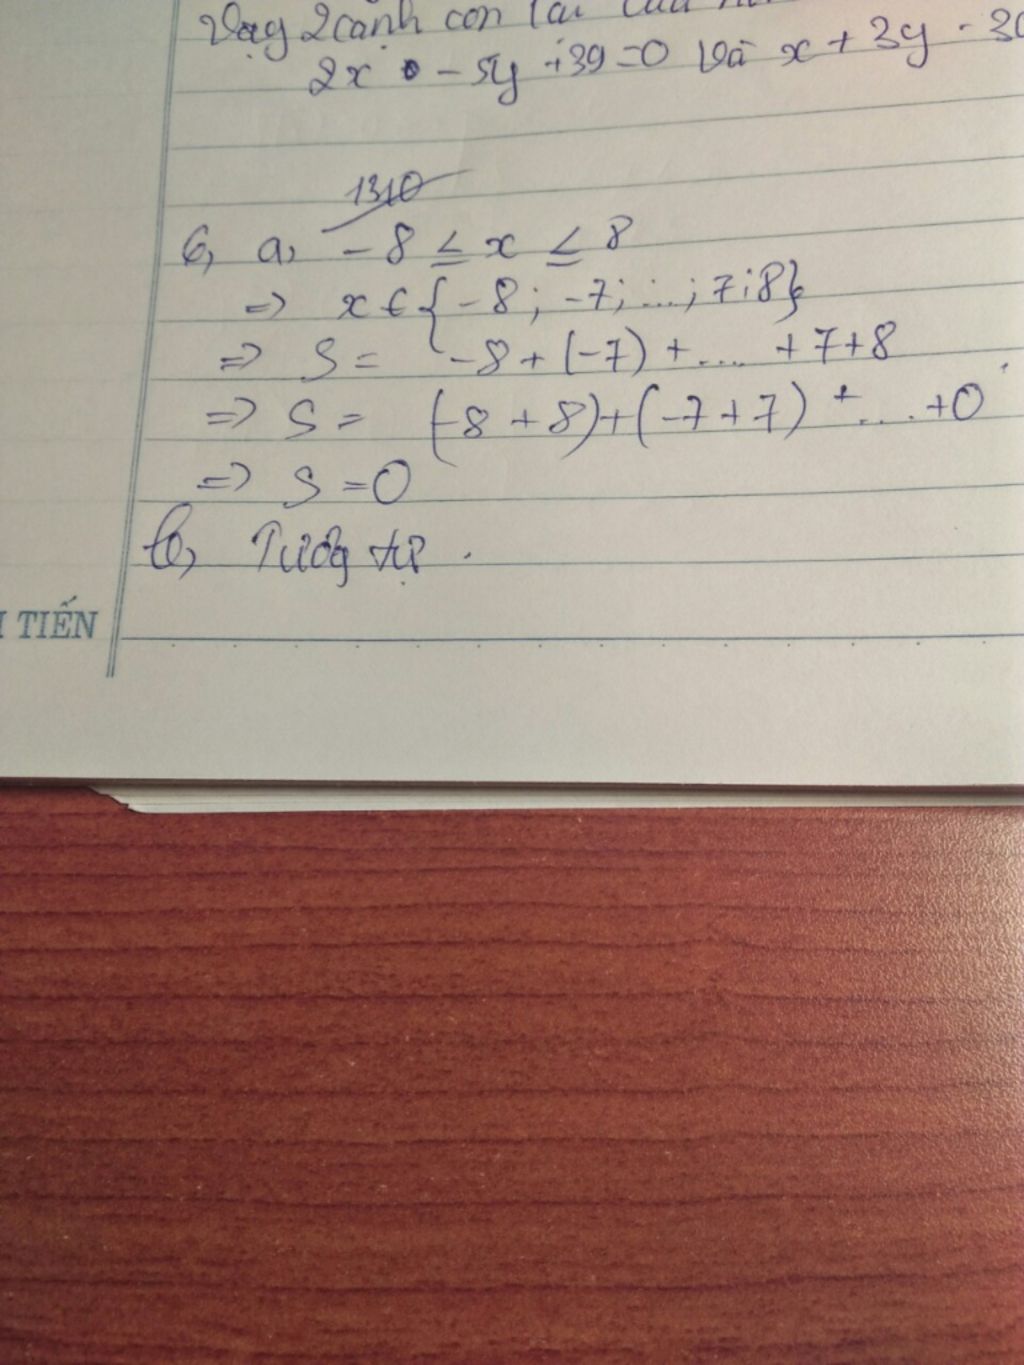 Vậy 2 cạnh còn lại của
2x - 5y + 39 = 0 Và x + 3y - 30
1310
6, a, -8 ≤ x ≤ 8
=> x ∈ {-8; -7; ...; 7; 8}
=> S = -8 + (-7) + .... + 7 + 8
=> S = (-8 + 8) + (-7 + 7) + .... + 0
=> S = 0
b, Tương tự.
TIẾN